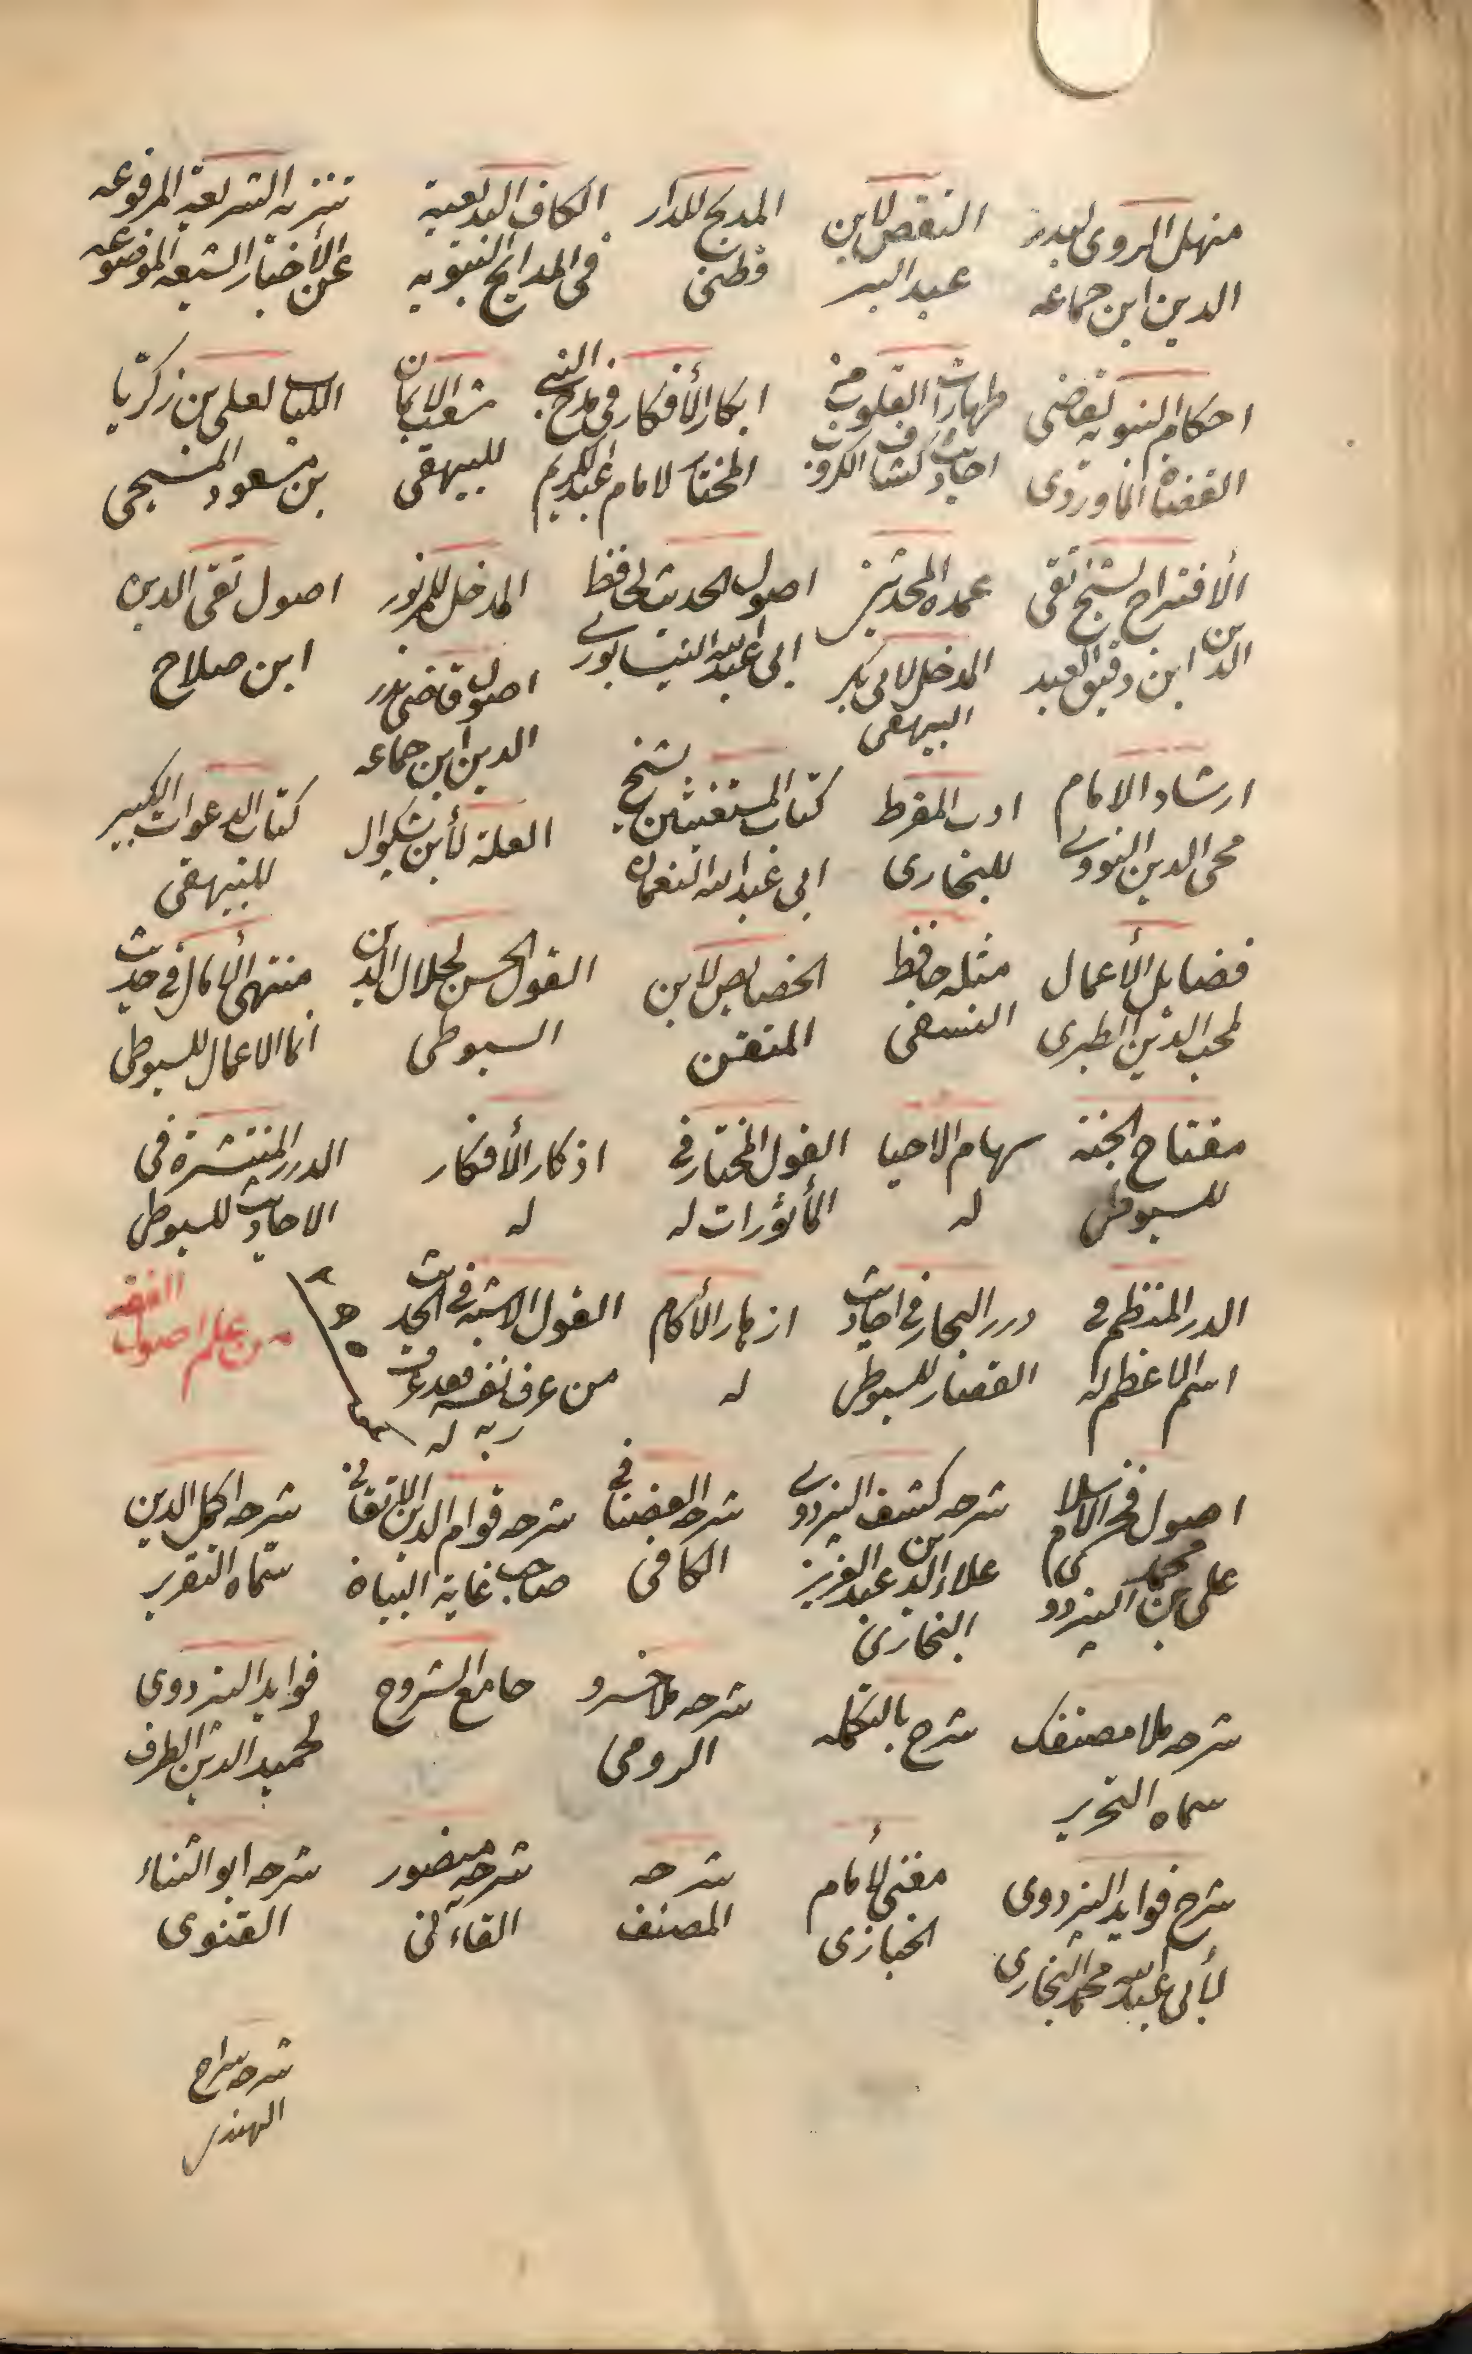 منهل الروى لبدر
الدين ابن جماعه
النقص لابن
عبد البر
المدبج للدار
قطنى
الكاف البديعية
فى المدايح النبويه
تنزيه الشريعة المرفوعه
عن الأخبار الشيعه الموضوعه
احكام النبويه لقاضى
القضاة الماوردى
طهارة القلوب من
احاديث كشاف الكروب
ابكار الأفكار فى مدح النبى
المختار لامام عبد الكريم
شعب الايمان
للبيهقى
اللباب لعلى بن زكريا
بن مسعود المنبجى
الأقتراح لشيخ تقى
الدين ابن دقيق العيد
عمده المحدثين
المدخل لابى بكر
البيهقى
اصول الحديث لحافظ
ابى عبد الله النيسابورى
المدخل للمزبور
اصول قاضى بدر
الدين ابن جماعه
اصول تقى الدين
ابن صلاح
ارشاد الامام
محى الدين النووى
ادب المفرط
للبخارى
كتاب المستغيثين لشيخ
ابى عبد الله النعمان
العلة لأبن بشكوال
كتاب الدعوات الكبير
للبيهقى
فضايل الأعمال
لمحب الدين الطبرى
مثله حافظ
النسفى
الخصايص لابن
المتقن
القول الحسن لجلال الدين
السيوطى
منتهى الأمال فى حديث
انما الاعمال للسيوطى
مفتاح الجنة
للسيوطى
سهام الاحيا
له
القول المختار فى
المأثورات له
اذكار الأفكار
له
الدرر المنتشرة فى
الاحاديث للسيوطى
الدر المنتظم فى
اسم الاعظم له
درر البحار فى احاديث
القصار للسيوطى
ازهار الأكام
له
القول الاشبه فى الحديث
من عرف نفسه فقد عرف
ربه له
من علم اصول
الفقه
اصول فخر الاسلام
على بن محمد البزدوى
شرحه كشف البزدوى
علاء الدين عبد العزيز
البخارى
شرحه العضناقى
الكافى
شرحه قوام الدين الاتقانى
صاحب غاية البيان
شرحه اكمل الدين
سماه التقرير
شرحه ملا مصنفك
سماه التحرير
شرح بالتكمله
شرحه ملا خسرو
الرومى
جامع الشروح
فوايد البزدوى
لحميد الدين الطرف
شرح فوايد البزدوى
لأبى عبد الله محمد البخارى
مغنى لأمام
الخبازى
شرحه
المصنف
شرحه منصور
القاآنى
شرحه ابو الثناء
القنوى
شرحه سراج
الهندى